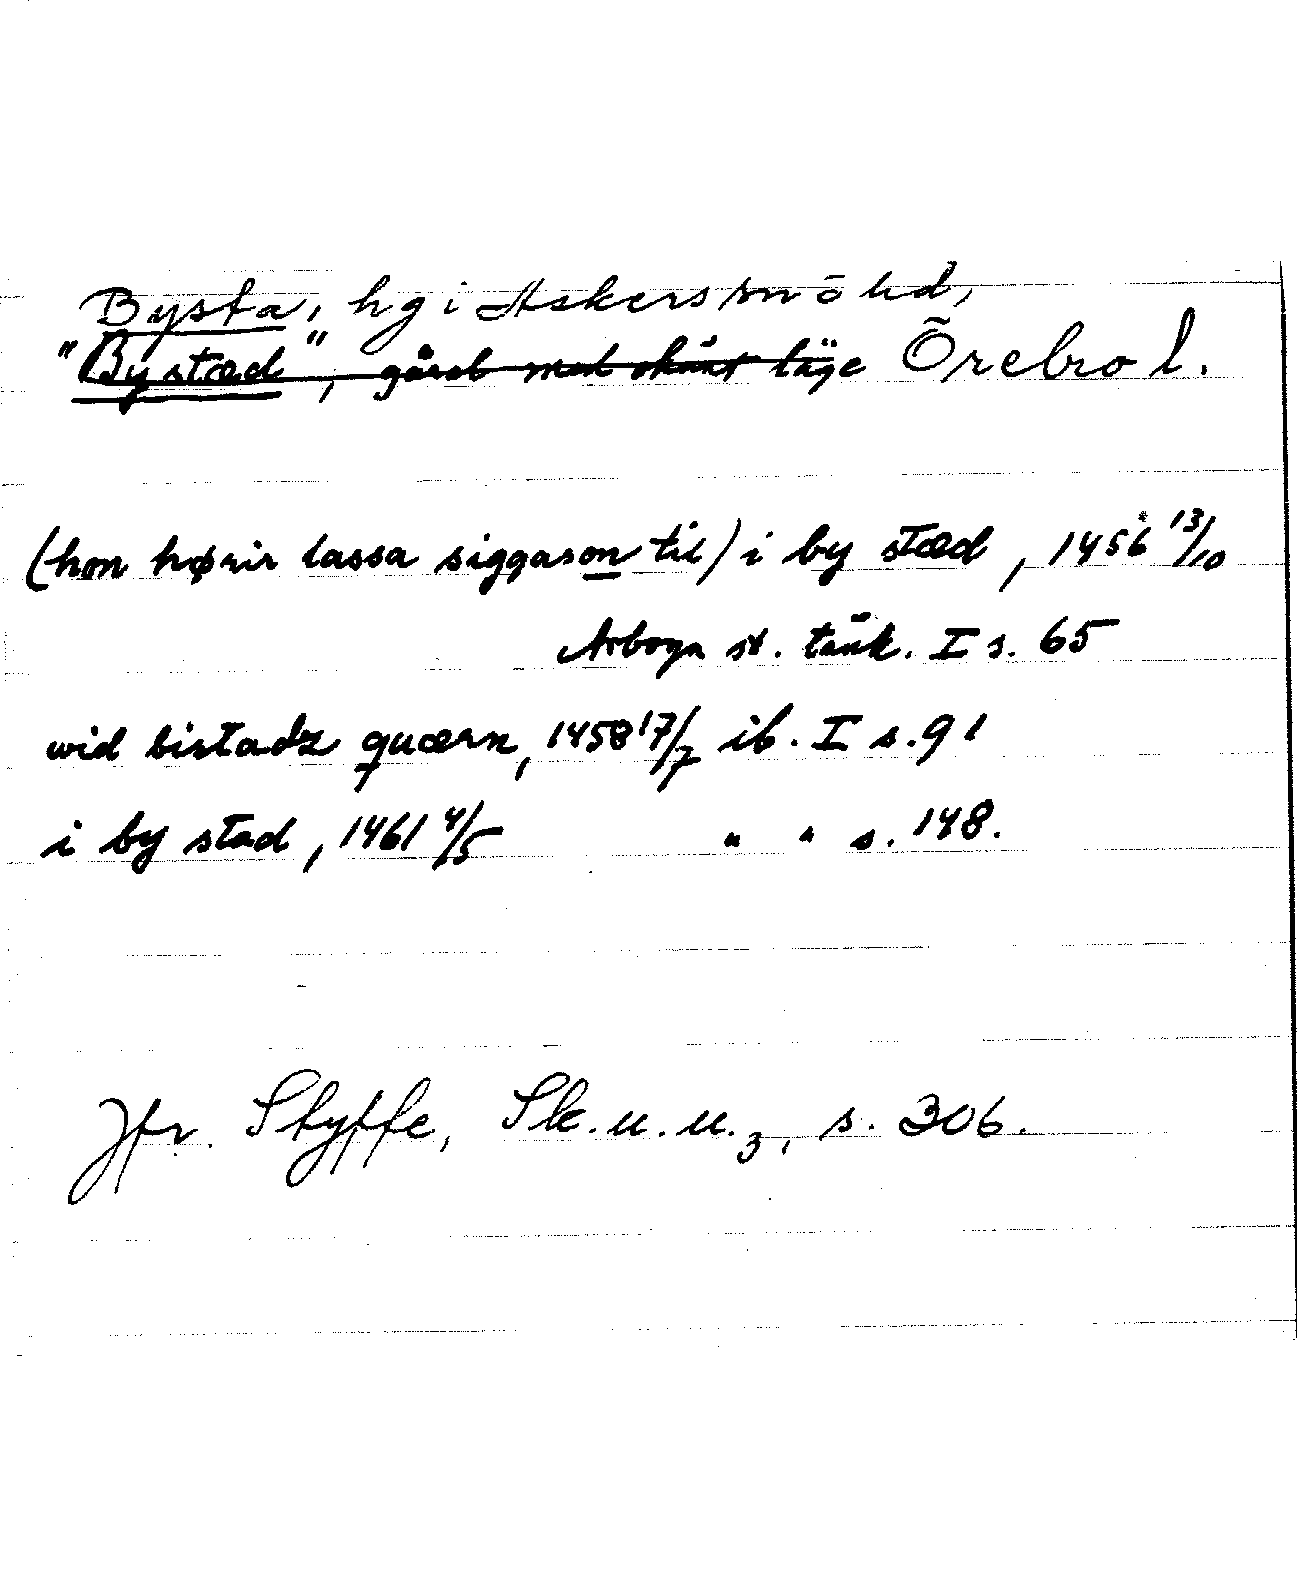 Bysta, hg i Askers sn ö hd,
"By stæd", gård med okänt läge Örebro l.
(hon hørir lassa siggason til) i by stæd, 1456 13/10
Arboga st. tänk. I s. 65
wid bistadz quærn, 1458 17/7 ib. I s. 91
i by stad, 1461 4/5 " " s. 148.
Jfr. Styffe, Sk. u. u. 3, s. 306.